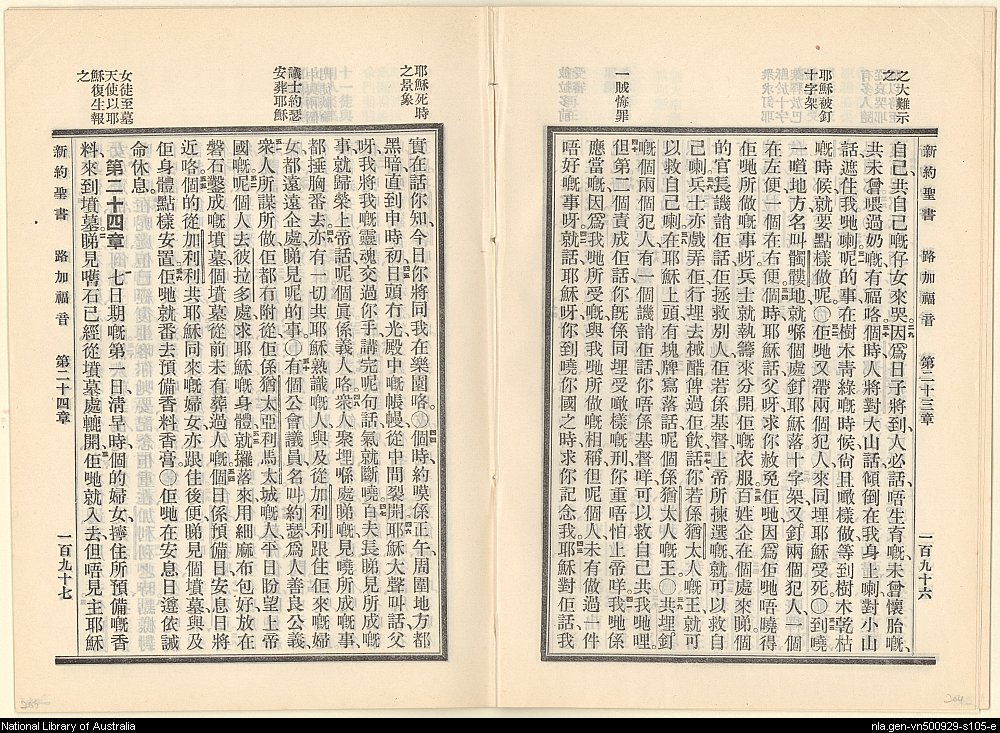 之大難示
之
耶穌被釘
十字架
一賊悔罪
新約聖書　路加福音　第二十三章　一百九十六
自己、共自己嘅仔女來哭、因爲日子將到、人必話、唔生育嘅、未曾懷胎嘅、
共未曾喂過奶嘅、有福咯、個時人將對大山話、傾倒在我身上喇、對小山
話、遮住我哋喇、呢的事、在樹木青綠嘅時候、尚且噉樣做、等到樹木乾枯
嘅時候、就要點樣做呢。○佢哋又帶兩個犯人來、同埋耶穌受死、○到曉
一噠地方、名叫髑髏地、就喺個處釘耶穌落十字架、又釘兩個犯人、一個
在左便、一個在右便、個時耶穌話、父呀、求你赦免佢哋、因爲佢哋唔曉得
佢哋所做嘅事呀、兵士就執籌來分開佢嘅衣服、百姓企在個處來睇、個
的官長譏誚佢話、佢拯救別人、佢若係基督、上帝所揀選嘅、就可以救自
己喇、兵士亦戲弄佢、行埋去、椷醋俾過佢飲、話、你若係猶太人嘅王、就可
以救自己喇、在耶穌上頭有塊牌、寫落話、呢個係猶太人嘅王。○共埋釘
嘅個兩個犯人、有一個譏誚佢話、你唔係基督咩、可以救自己共我哋哩。
但第二個責成佢話、你旣係同埋受噉樣嘅刑、你重唔怕上帝咩、我哋係
應當嘅、因爲我哋所受嘅、與我哋所做嘅相稱、但呢個人未有做過一件
唔好嘅事呀、就話、耶穌呀、你到曉你國之時、求你記念我、耶穌對佢話、我
耶穌死時
之景象
議士約瑟
安葬耶穌
女徒至墓
天使以耶
穌復生報
之
實在話你知、今日你將同我在樂園咯。○個時約嘆係正午、周圍地方都
黑暗、直到申時初、日頭冇光、殿中嘅帳幔、從中間裂開、耶穌大聲叫話、父
呀、我將我嘅靈魂交過你手、講完呢句話、氣就斷曉、百夫長睇見所成嘅
事、就歸榮上帝話、呢個眞係義人咯、衆人聚埋喺處睇嘅、見曉所成嘅事、
都捶胸番去、亦有一切共耶穌熟識嘅人、與及從加利利跟住佢來嘅婦
女、都遠遠企處、睇見呢的事。○有個公會議員、名叫約瑟、爲人善良公義、
衆人所謀所做、佢都冇附從、佢係猶太亞利馬太城嘅人、平日盼望上帝
國嘅、呢個人去彼拉多處、求耶穌嘅身體、就攞落來、用細麻布包好、放在
磐石鑿成嘅墳墓、個墳墓從前未有葬過人嘅、個日係預備日、安息日將
近咯、個的從加利利共耶穌同來嘅婦女、亦跟住後便、睇見個墳墓、與及
佢身體點樣安置、佢哋就番去、預備香料香膏。○佢哋在安息日、遵依誡
命休息。
第二十四章　七日期嘅第一日、淸早時、個的婦女、擰住所預備嘅香
料、來到墳墓、睇見嚿石已經從墳墓處轆開、佢哋就入去、但唔見主耶穌
新約聖書　路加福音　第二十四章　一百九十七
National Library of Australia
nla.gen-vn500929-s105-e